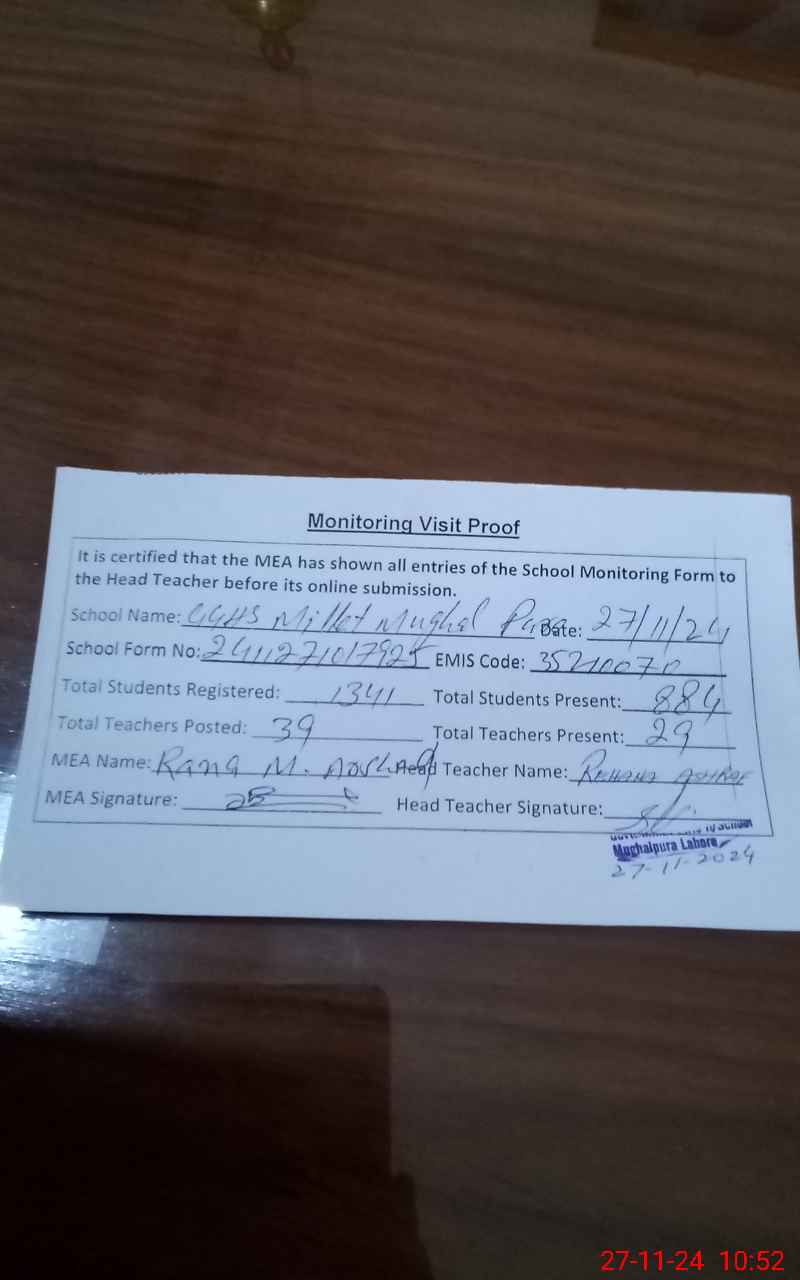 Monitoring Visit Proof
It is certified that the MEA has shown all entries of the School Monitoring Form to
the Head Teacher before its online submission.
School Name: GGHS Millat Mughal Pura Date: 27/11/24
School Form No: 2411271017925 EMIS Code: 35210070
Total Students Registered: 1341 Total Students Present: 884
Total Teachers Posted: 39 Total Teachers Present: 29
MEA Name: Rana M. Head Teacher Name: Rehana Ashraf
MEA Signature: Head Teacher Signature:
School
Mughalpura Lahore
27-11-2024
27-11-24 10:52